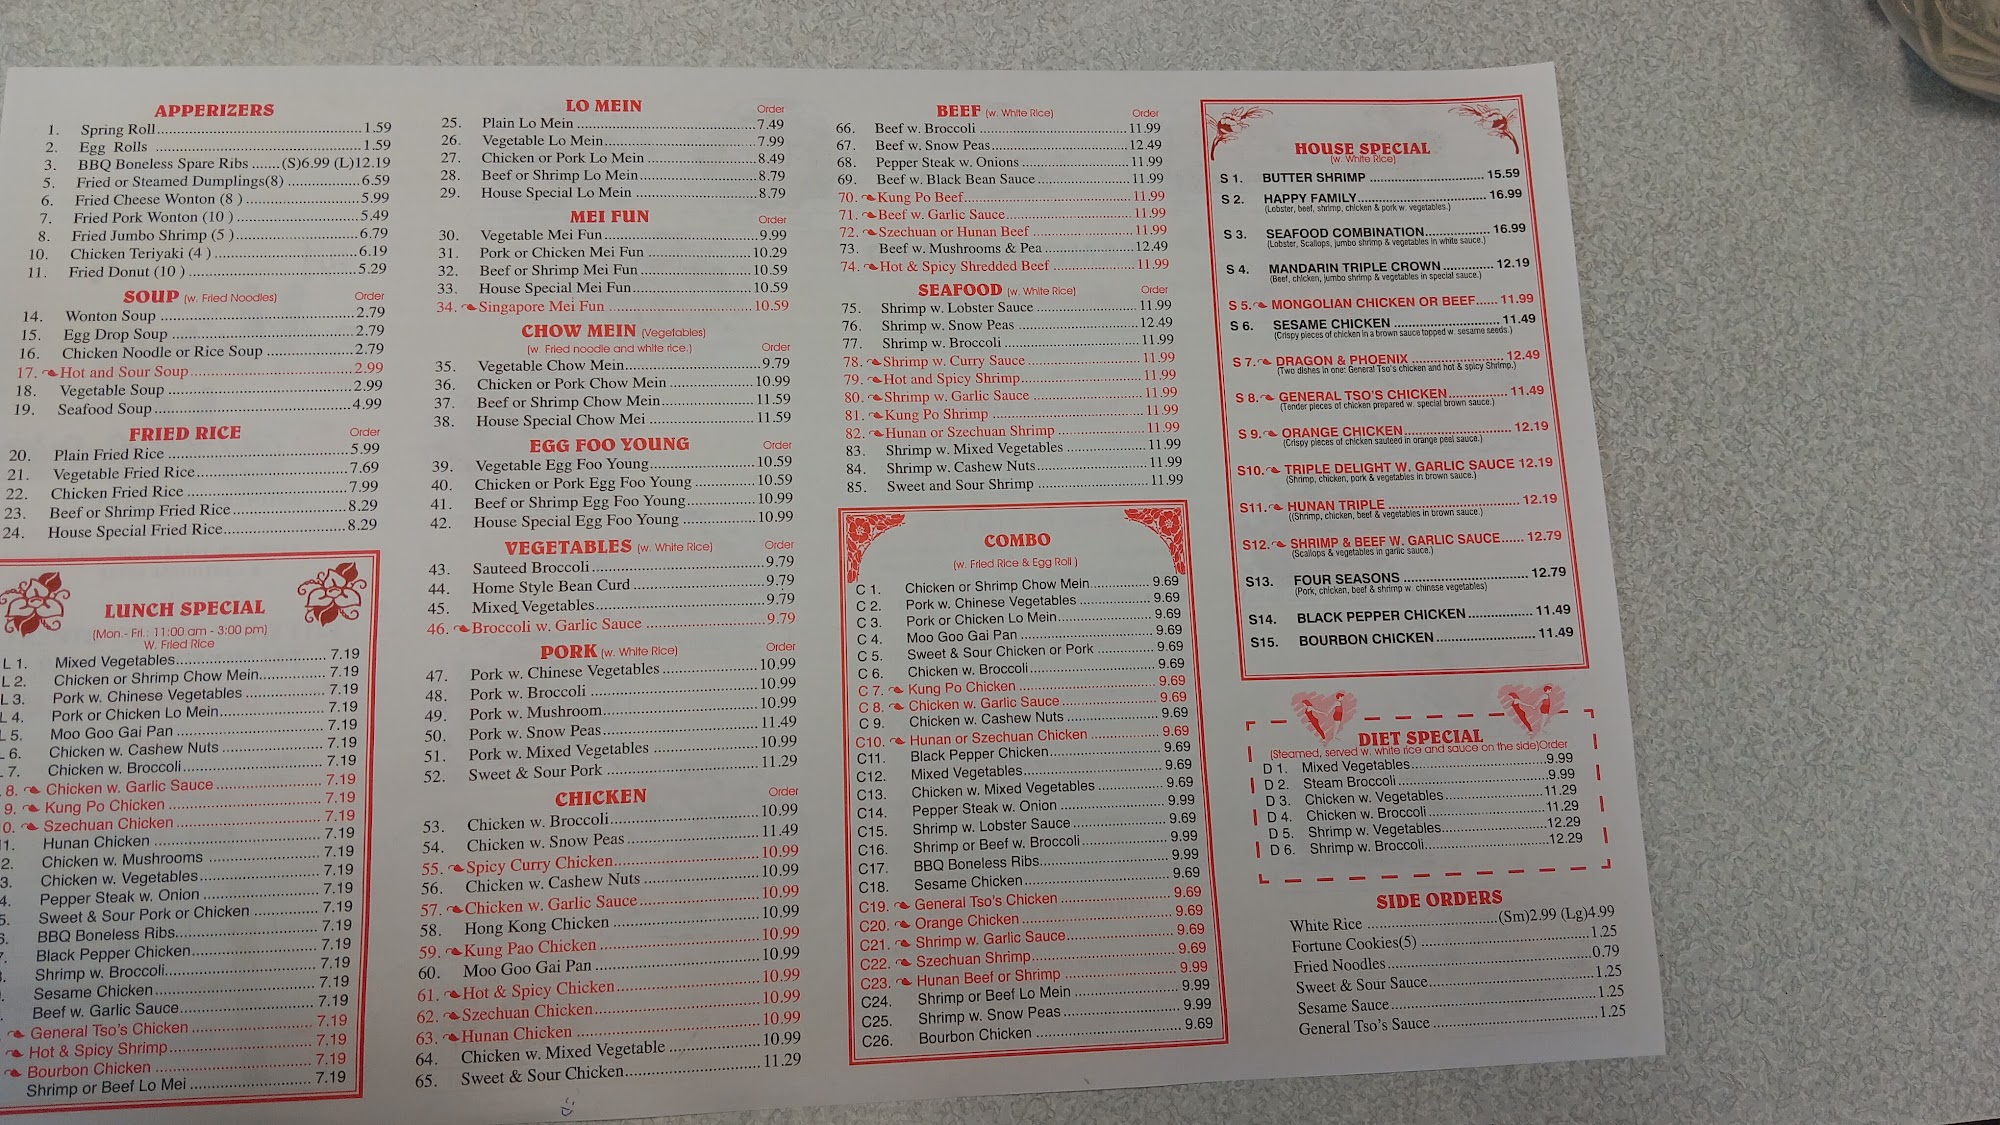 APPERIZERS
1. Spring Roll 1.59
2. Egg Rolls 1.59
3. BBQ Boneless Spare Ribs (S)6.99 (L)12.19
5. Fried or Steamed Dumplings(8) 6.59
6. Fried Cheese Wonton (8 ) 5.99
7. Fried Pork Wonton (10 ) 5.49
8. Fried Jumbo Shrimp (5 ) 6.79
10. Chicken Teriyaki (4 ) 6.19
11. Fried Donut (10 ) 5.29
SOUP (w. Fried Noodles) Order
14. Wonton Soup 2.79
15. Egg Drop Soup 2.79
16. Chicken Noodle or Rice Soup 2.79
17. Hot and Sour Soup 2.99
18. Vegetable Soup 2.99
19. Seafood Soup 4.99
FRIED RICE Order
20. Plain Fried Rice 5.99
21. Vegetable Fried Rice 7.69
22. Chicken Fried Rice 7.99
23. Beef or Shrimp Fried Rice 8.29
24. House Special Fried Rice 8.29
LUNCH SPECIAL
(Mon.- Fri.: 11:00 am - 3:00 pm)
W. Fried Rice
L 1. Mixed Vegetables 7.19
L 2. Chicken or Shrimp Chow Mein 7.19
L 3. Pork w. Chinese Vegetables 7.19
L 4. Pork or Chicken Lo Mein 7.19
L 5. Moo Goo Gai Pan 7.19
6. Chicken w. Cashew Nuts 7.19
7. Chicken w. Broccoli 7.19
8. Chicken w. Garlic Sauce 7.19
9. Kung Po Chicken 7.19
0. Szechuan Chicken 7.19
1. Hunan Chicken 7.19
2. Chicken w. Mushrooms 7.19
3. Chicken w. Vegetables 7.19
4. Pepper Steak w. Onion 7.19
5. Sweet & Sour Pork or Chicken 7.19
6. BBQ Boneless Ribs 7.19
7. Black Pepper Chicken 7.19
Shrimp w. Broccoli 7.19
Sesame Chicken 7.19
Beef w. Garlic Sauce 7.19
General Tso's Chicken 7.19
Hot & Spicy Shrimp 7.19
Bourbon Chicken 7.19
Shrimp or Beef Lo Mei 7.19
LO MEIN Order
25. Plain Lo Mein 7.49
26. Vegetable Lo Mein 7.99
27. Chicken or Pork Lo Mein 8.49
28. Beef or Shrimp Lo Mein 8.79
29. House Special Lo Mein 8.79
MEI FUN Order
30. Vegetable Mei Fun 9.99
31. Pork or Chicken Mei Fun 10.29
32. Beef or Shrimp Mei Fun 10.59
33. House Special Mei Fun 10.59
34. Singapore Mei Fun 10.59
CHOW MEIN (Vegetables)
(w. Fried noodle and white rice.) Order
35. Vegetable Chow Mein 9.79
36. Chicken or Pork Chow Mein 10.99
37. Beef or Shrimp Chow Mein 11.59
38. House Special Chow Mei 11.59
EGG FOO YOUNG Order
39. Vegetable Egg Foo Young 10.59
40. Chicken or Pork Egg Foo Young 10.59
41. Beef or Shrimp Egg Foo Young 10.99
42. House Special Egg Foo Young 10.99
VEGETABLES (w. White Rice) Order
43. Sauteed Broccoli 9.79
44. Home Style Bean Curd 9.79
45. Mixed Vegetables 9.79
46. Broccoli w. Garlic Sauce 9.79
PORK (w. White Rice) Order
47. Pork w. Chinese Vegetables 10.99
48. Pork w. Broccoli 10.99
49. Pork w. Mushroom 10.99
50. Pork w. Snow Peas 11.49
51. Pork w. Mixed Vegetables 10.99
52. Sweet & Sour Pork 11.29
CHICKEN Order
53. Chicken w. Broccoli 10.99
54. Chicken w. Snow Peas 11.49
55. Spicy Curry Chicken 10.99
56. Chicken w. Cashew Nuts 10.99
57. Chicken w. Garlic Sauce 10.99
58. Hong Kong Chicken 10.99
59. Kung Pao Chicken 10.99
60. Moo Goo Gai Pan 10.99
61. Hot & Spicy Chicken 10.99
62. Szechuan Chicken 10.99
63. Hunan Chicken 10.99
64. Chicken w. Mixed Vegetable 10.99
65. Sweet & Sour Chicken 11.29
BEEF (w. White Rice) Order
66. Beef w. Broccoli 11.99
67. Beef w. Snow Peas 12.49
68. Pepper Steak w. Onions 11.99
69. Beef w. Black Bean Sauce 11.99
70. Kung Po Beef 11.99
71. Beef w. Garlic Sauce 11.99
72. Szechuan or Hunan Beef 11.99
73. Beef w. Mushrooms & Pea 12.49
74. Hot & Spicy Shredded Beef 11.99
SEAFOOD (w. White Rice) Order
75. Shrimp w. Lobster Sauce 11.99
76. Shrimp w. Snow Peas 12.49
77. Shrimp w. Broccoli 11.99
78. Shrimp w. Curry Sauce 11.99
79. Hot and Spicy Shrimp 11.99
80. Shrimp w. Garlic Sauce 11.99
81. Kung Po Shrimp 11.99
82. Hunan or Szechuan Shrimp 11.99
83. Shrimp w. Mixed Vegetables 11.99
84. Shrimp w. Cashew Nuts 11.99
85. Sweet and Sour Shrimp 11.99
COMBO
(w. Fried Rice & Egg Roll )
C 1. Chicken or Shrimp Chow Mein 9.69
C 2. Pork w. Chinese Vegetables 9.69
C 3. Pork or Chicken Lo Mein 9.69
C 4. Moo Goo Gai Pan 9.69
C 5. Sweet & Sour Chicken or Pork 9.69
C 6. Chicken w. Broccoli 9.69
C 7. Kung Po Chicken 9.69
C 8. Chicken w. Garlic Sauce 9.69
C 9. Chicken w. Cashew Nuts 9.69
C10. Hunan or Szechuan Chicken 9.69
C11. Black Pepper Chicken 9.69
C12. Mixed Vegetables 9.69
C13. Chicken w. Mixed Vegetables 9.69
C14. Pepper Steak w. Onion 9.99
C15. Shrimp w. Lobster Sauce 9.69
C16. Shrimp or Beef w. Broccoli 9.99
C17. BBQ Boneless Ribs 9.99
C18. Sesame Chicken 9.69
C19. General Tso's Chicken 9.69
C20. Orange Chicken 9.69
C21. Shrimp w. Garlic Sauce 9.69
C22. Szechuan Shrimp 9.69
C23. Hunan Beef or Shrimp 9.99
C24. Shrimp or Beef Lo Mein 9.99
C25. Shrimp w. Snow Peas 9.99
C26. Bourbon Chicken 9.69
HOUSE SPECIAL
(w. White Rice)
S 1. BUTTER SHRIMP 15.59
S 2. HAPPY FAMILY 16.99
(Lobster, beef, shrimp, chicken & pork w. vegetables.)
S 3. SEAFOOD COMBINATION 16.99
(Lobster, Scallops, jumbo shrimp & vegetables in white sauce.)
S 4. MANDARIN TRIPLE CROWN 12.19
(Beef, chicken, jumbo shrimp & vegetables in special sauce.)
S 5. MONGOLIAN CHICKEN OR BEEF 11.99
S 6. SESAME CHICKEN 11.49
(Crispy pieces of chicken in a brown sauce topped w. sesame seeds.)
S 7. DRAGON & PHOENIX 12.49
(Two dishes in one: General Tso's chicken and hot & spicy Shrimp.)
S 8. GENERAL TSO'S CHICKEN 11.49
(Tender pieces of chicken prepared w. special brown sauce.)
S 9. ORANGE CHICKEN 12.19
(Crispy pieces of chicken sauteed in orange peel sauce.)
S10. TRIPLE DELIGHT W. GARLIC SAUCE 12.19
(Shrimp, chicken, pork & vegetables in brown sauce.)
S11. HUNAN TRIPLE 12.19
((Shrimp, chicken, beef & vegetables in brown sauce.)
S12. SHRIMP & BEEF W. GARLIC SAUCE 12.79
(Scallops & vegetables in garlic sauce.)
S13. FOUR SEASONS 12.79
(Pork, chicken, beef & shrimp w. chinese vegetables)
S14. BLACK PEPPER CHICKEN 11.49
S15. BOURBON CHICKEN 11.49
DIET SPECIAL
(Steamed, served w. white rice and sauce on the side)Order
D 1. Mixed Vegetables 9.99
D 2. Steam Broccoli 9.99
D 3. Chicken w. Vegetables 11.29
D 4. Chicken w. Broccoli 11.29
D 5. Shrimp w. Vegetables 12.29
D 6. Shrimp w. Broccoli 12.29
SIDE ORDERS
White Rice (Sm)2.99 (Lg)4.99
Fortune Cookies(5) 1.25
Fried Noodles 0.79
Sweet & Sour Sauce 1.25
Sesame Sauce 1.25
General Tso's Sauce 1.25